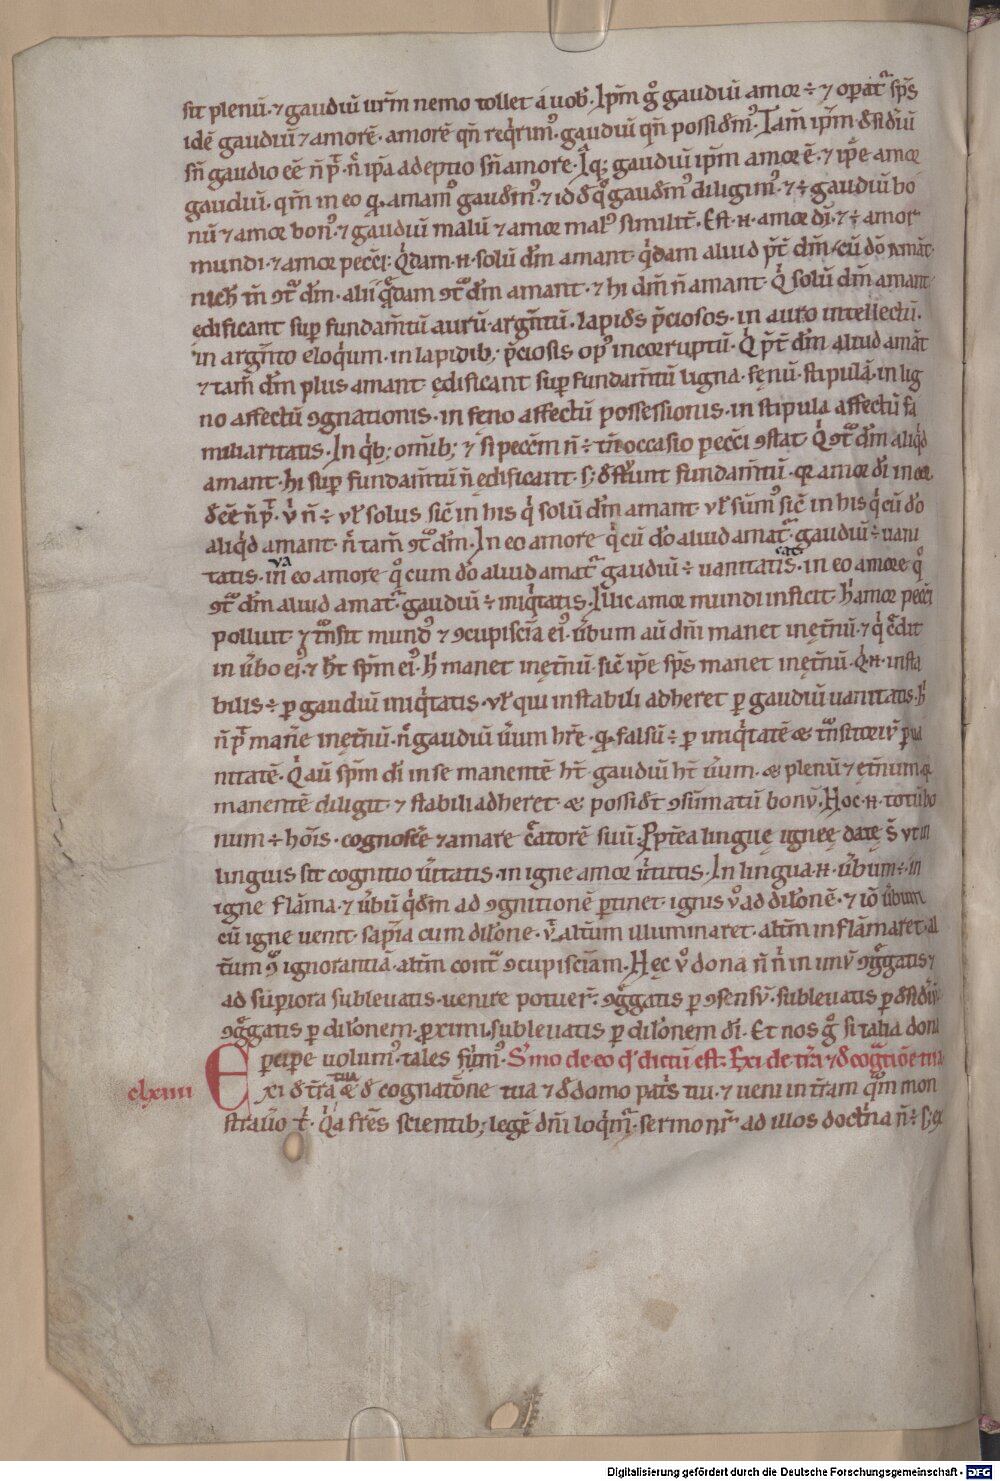 sit plenū. ⁊ gaudiū urm̄ nemo tollet a uob̄. Ipm̄ gͦ gaudiū amor ÷ ⁊ opat᷑ sp̄s
idē gaudiū ⁊ amorē. amorē qn̄ reqͥrimꝰ. gaudiū qn̄ possidemꝰ. Tam̄ ipm̄ dsidiū
sn̄ gaudio eē n̄ pt̄. nͨ ipa adeptio sn̄ amore. Iq; gaudiū ipm̄ amor ē. ⁊ ipe amor
gaudiū. qm̄ in eo qͩ amamꝰ gaudemꝰ. ⁊ id d qͦ gaudemꝰ diligimꝰ. ⁊ ÷ gaudiū bo
nū ⁊ amor bonꝰ. ⁊ gaudiū malū ⁊ amor malꝰ similit̄. Est .n. amor di. ⁊ ÷ amor
mundi. ⁊ amor pecci. Qͥdam .n. solū dm̄ amant. qͥdam aliud p̄t dm̄. cū do amāt
nich̄ tn̄ ꝯtͣ dm̄. alii qͥdam ꝯtͣ dm̄ amant. ⁊ hi dm̄ n̄ amant. Qͥ solū dm̄ amant
edificant sup fundam̄tū aurū. argn̄tū. lapids p̄ciosos. in auro intellectū.
in argn̄to eloqͥum. in lapidib; p̄ciosis opꝰ incorruptū. Qͥ p̄t dm̄ aliud amāt
⁊ tam̄ dm̄ plus amant ędificant sup fundam̄tū ligna. fęnū. stipulā. in lig
no affectū ꝯgnationis. in feno affectū possessionis. in stipula affectū fa
miliaritatis. In qͥb; om̄ib; ⁊ si peccm̄ n̄ ÷ tn̄ occasio pecci ꝯstat. Qͥ ꝯtͣ dm̄ aliqͥd
amant. hi sup fundam̄tū n̄ ędificant. s; dstͬunt fundam̄tū. qꝛ amor di in cor
de eē n̄ pt̄. vͥ n̄ ÷ vl̄ solus sic̄ in his qͥ solū dm̄ amant. vl̄ sūmꝰ sic̄ in his qͥ cū do
aliqͥd amant. n̄ tam̄ ꝯtͣ dm̄. In eo amore qͥ cū do aliud amat᷑. gaudiū ÷ uani
tatis. in eo amore qͦ cum do aliud amat᷑ gaudiū ÷ uanitatis. in eo amore qͦ
ꝯtͣ dm̄ aliud amat᷑. gaudiū ÷ iniqͥtatis. Illic amor mundi inficit. hͥ amor pecci
polluit. ⁊ tͣnsit mundꝰ ⁊ ꝯcupiscīa eiꝰ. ūbum aū dni manet inętn̄ū. ⁊ qͥ cͤdit
in ūbo eiꝰ. ⁊ ht̄ spm̄ eiꝰ. hͥ manet inętn̄ū. sic̄ ipe sp̄s manet inętn̄ū. Qͥ .n. insta
bilis ÷ p gaudiū iniqͥtatis. vl̄ qui instabili adheret p gaudiū uanitatis. hͥ
n̄ pt̄ man̄e inętn̄ū. nͨ gaudiū ūum hr̄e. qͩ falsū ÷ p iniqͥtatē
nitatē. Qͥ aū spm̄ di in se manentē ht̄. gaudiū ht̄ ūum. ⁊ plenū ⁊ ętn̄um. qꝛ
manentē diligit. ⁊ stabili adheret. ⁊ possidt ꝯsūmatū bonū. Hoc .n. totū bo
num ÷ hois. cognoscē ⁊ amare cͤatorē suū. Ppt̄ea linguę igneę datę s̄ ut in
linguis sit cognitio ūitatis. in igne amor ūtutis. In lingua .n. ūbum ÷. in
igne flāma. ⁊ ūbū qͥdm ad ꝯgnitionē ptinet. ignis ūo ad dil̄onē. ⁊ iō ūbum
cū igne uenit. sapīa cum dil̄one. vͭ altm̄ illuminaret. altm̄ inflāmaret. al
tum̄ ꝯͣ ignorantiā. altm̄ contͣ ꝯcupiscīam. Hęc ūo dona n̄ nͥ in unū ꝯgͤgatis ⁊
ad supiora subleuatis. uenire potuer̄. ꝯgͤgatis p ꝯsensū. subleuatis p dsidiū.
ꝯgͤgatis p dil̄onem. proximi. subleuatis p dil̄onem di. Et nos gͦ si talia dona
pcipe uolumꝰ. tales simꝰ. Smo de eo qͩ dictū est. Exi de tr̄a ⁊ d cogͣtiōe tua
clxiiii
Exi d tr̄a tua ⁊ d cognatōne tua ⁊ d domo patͥs tui. ⁊ ueni in tr̄am qͣm mon
strauͦo tͥ. Qͥa frēs scientib; legē dni loqͥmur. sermo nr̄ ad illos doctͥna n̄ ÷ s; ex
Digitalisierung gefördert durch die Deutsche Forschungsgemeinschaft - DFG